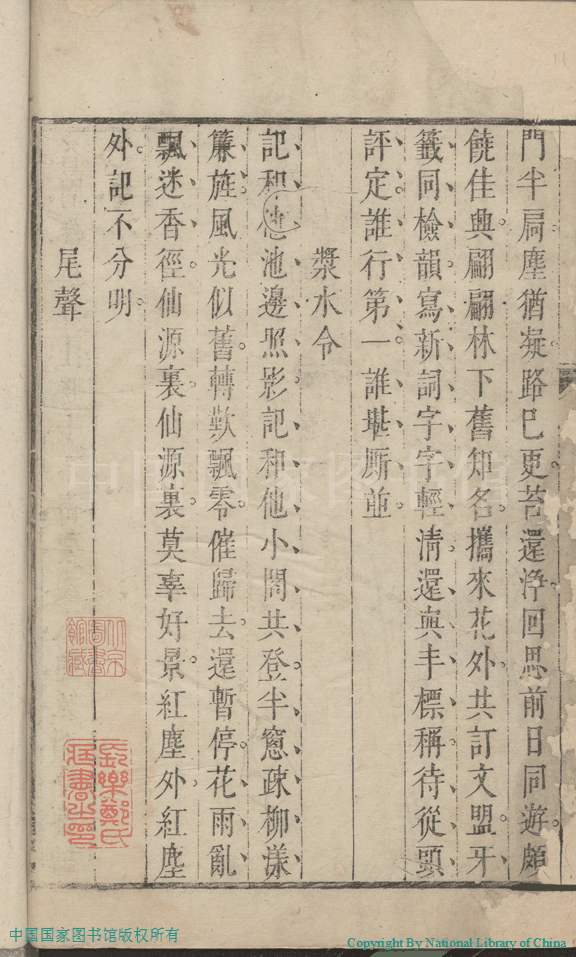 門半扃塵猶凝路已更苔還淨回思前日同遊頗
饒佳興翩翩林下舊知名攜來花外共訂文盟牙
籤同檢韻寫新詞字字輕清還與丰標稱待從頭
評定誰行第一誰堪厮並
漿水令
記和他池邊照影記和他小閣共登半窻疎柳漾
簾旌風光似舊轉歎飄零催歸去還暫停花雨亂
飄迷香徑仙源裏仙源裏莫辜好景紅塵外紅塵
外記不分明
尾聲
北京圖書館藏
長樂鄭氏
藏書之印
中国国家图书馆版权所有
Copyright By National Library of China